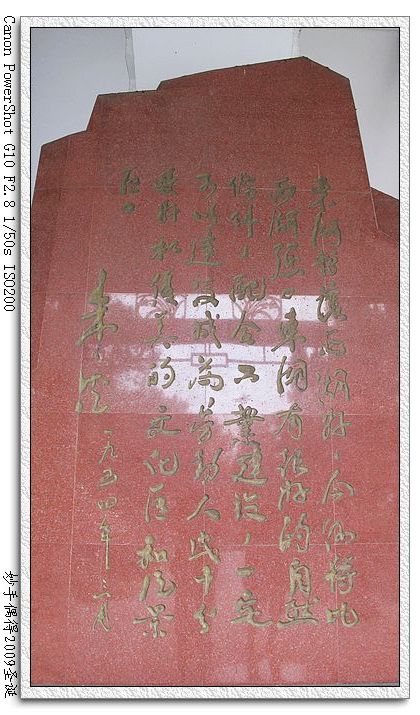 东湖暂让西湖好，今后将比
西湖强。東湖有很好的自然
條件，配合工業建設，一定
可以建设成为劳動人民十分
爱好和優美的文化区和风景
区。
朱德
一九五四年三月
Canon PowerShot G10 F2.8 1/50s ISO200
妙手偶得2009圣诞